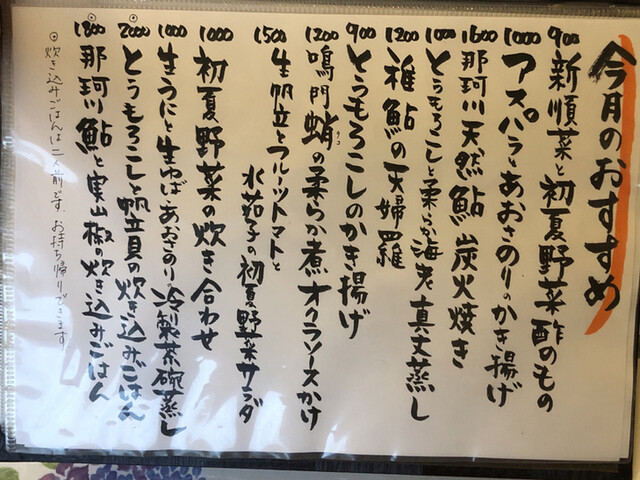 今月のおすすめ
900 新順菜と初夏野菜酢のもの
1000 アスパラとあおさのりのかき揚げ
1600 那珂川天然鮎炭火焼き
1000 とうもろこしと柔らか海老真丈蒸し
1200 稚鮎の天婦羅
900 とうもろこしのかき揚げ
1200 鳴門蛸の柔らか煮オクラソースかけ
タコ
1500 生帆立とフルーツトマトと
水茄子の初夏野菜サラダ
1000 初夏野菜の炊き合わせ
1000 生うにと生ゆばあおさのり冷製茶碗蒸し
⦿2000 とうもろこしと帆立貝の炊き込みごはん
⦿1800 那珂川鮎と実山椒の炊き込みごはん
⦿炊き込みごはんは二人前です。お持ち帰りできます